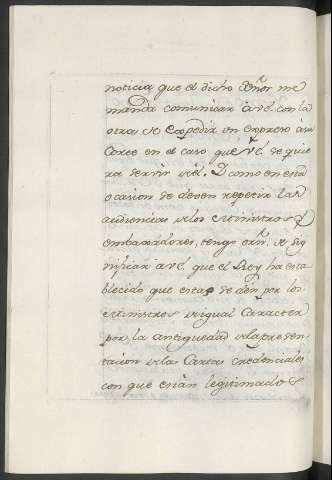 noticia que el dicho Señor me
manda comunicar a v.e. con la
otra de expedir un expreso à su
Corte en el caso que v.e. se quie
ra servir del. Y como en esta
ocasion se deven repetir las
audiencias de los Ministros y
embaxadores, tengo orn. de sig
nificar a v.e. que el Rey ha esta
blecido que estas se den por los
Ministros de igual Caracter
por la antiguedad de la presen
tacion de las Cartas credenciales
con que están legitimados